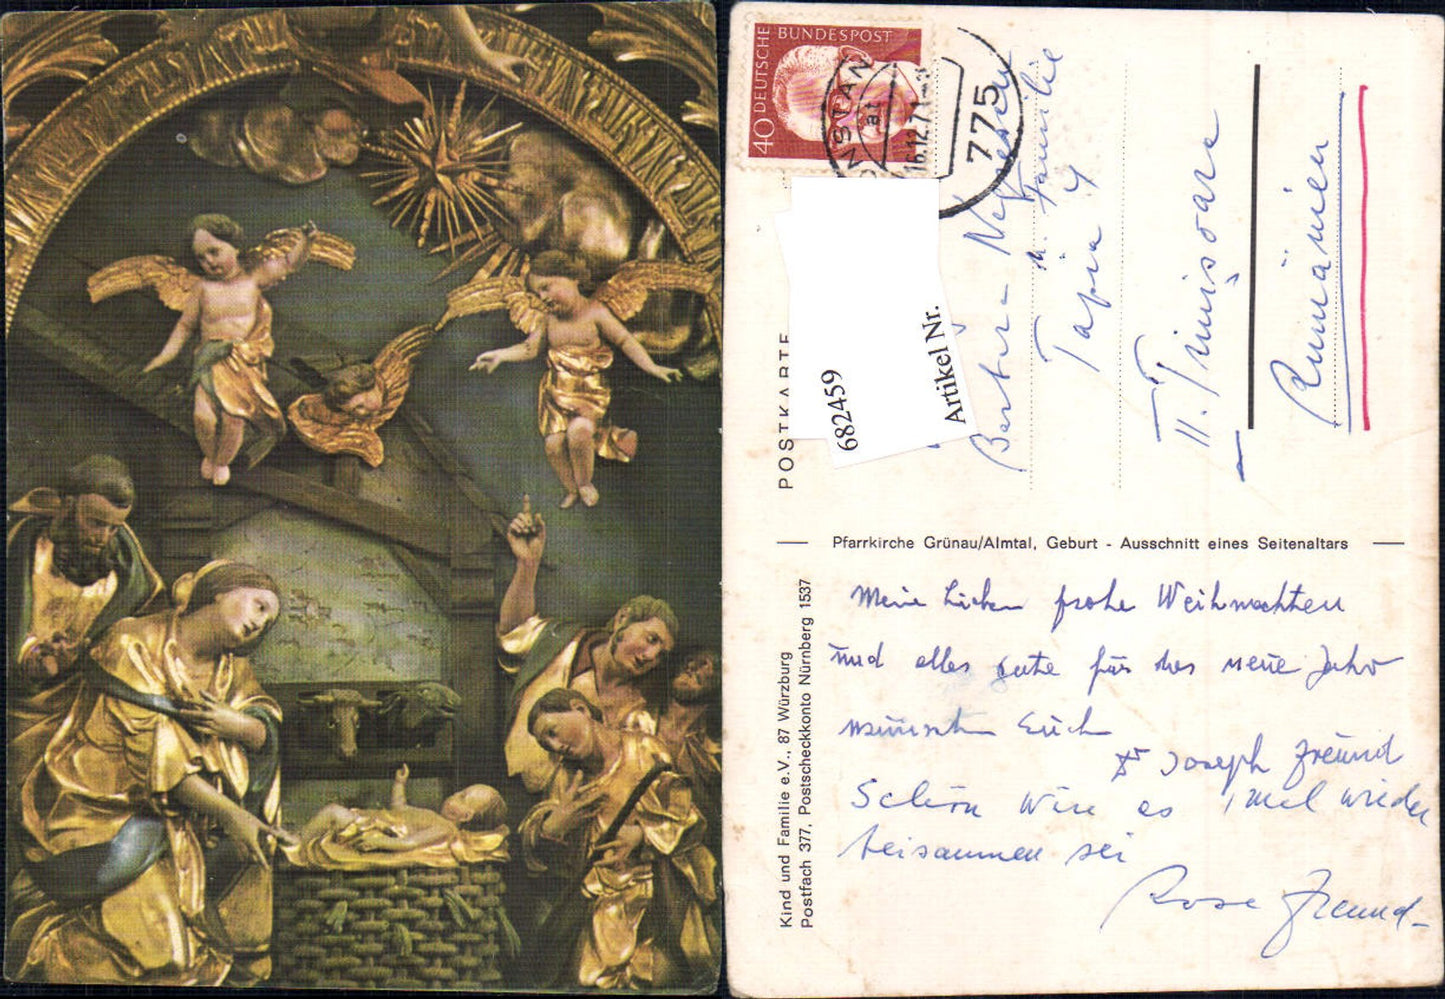 40 DEUTSCHE BUNDESPOST
16.12.71
775
POSTKARTE
682459
Artikel Nr.
u. Familie
Tapia 4
Timisoara
Rumänien
Pfarrkirche Grünau/Almtal, Geburt - Ausschnitt eines Seitenaltars
Kind und Familie e.V., 87 Würzburg
Postfach 377, Postscheckkonto Nürnberg 1537
Meine Lieben frohe Weihnachten
und alles gute für das neue Jahr
wünscht Euch
Joseph Freund
Schön wäre es mal wieder
beisammen sei
Rose Freund